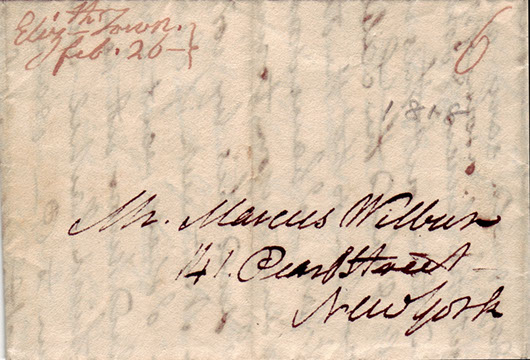 Elizth. Town.
feb. 26
6
1818
Mr. Marcus Wilbur
141. Pearl Street
New York